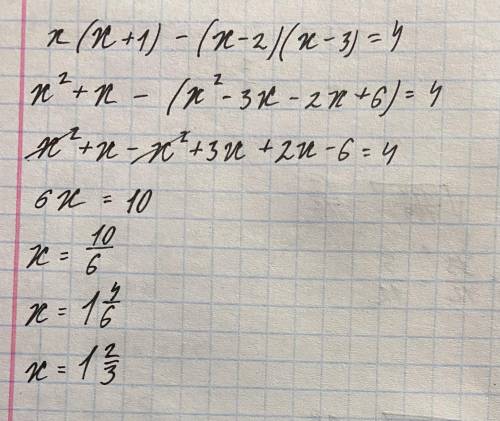 x(x+1)-(x-2)(x-3)=4
x²+x-(x²-3x-2x+6)=4
x²+x-x²+3x+2x-6=4
6x=10
x=10/6
x=1 4/6
x=1 2/3